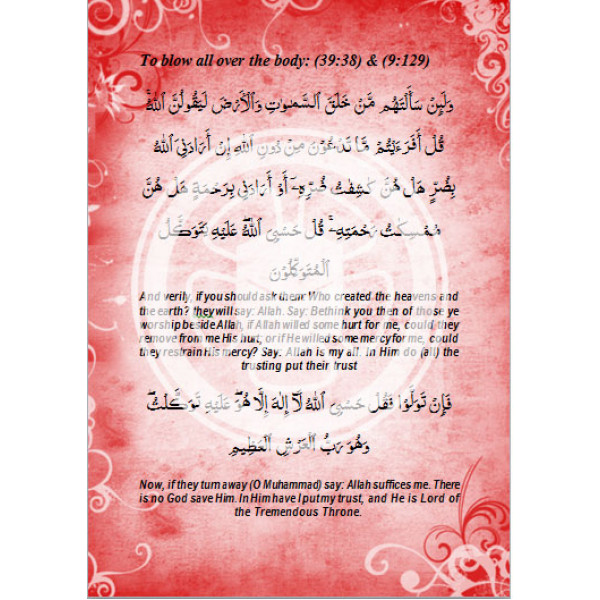 To blow all over the body: (39:38) & (9:129)
وَلَئِن سَأَلْتَهُم مَّنْ خَلَقَ ٱلسَّمَٰوَٰتِ وَٱلْأَرْضَ لَيَقُولُنَّ ٱللَّهُ ۚ
قُلْ أَفَرَءَيْتُم مَّا تَدْعُونَ مِن دُونِ ٱللَّهِ إِنْ أَرَادَنِىَ ٱللَّهُ
بِضُرٍّ هَلْ هُنَّ كَٰشِفَٰتُ ضُرِّهِۦٓ أَوْ أَرَادَنِى بِرَحْمَةٍ هَلْ هُنَّ
مُمْسِكَٰتُ رَحْمَتِهِۦ ۚ قُلْ حَسْبِىَ ٱللَّهُ ۖ عَلَيْهِ يَتَوَكَّلُ
ٱلْمُتَوَكِّلُونَ
And verily, if you should ask them: Who created the heavens and
the earth? they will say: Allah. Say: Bethink you then of those ye
worship beside Allah, if Allah willed some hurt for me, could they
remove from me His hurt; or if He willed some mercy for me, could
they restrain His mercy? Say: Allah is my all. In Him do (all) the
trusting put their trust
فَإِن تَوَلَّوْا۟ فَقُلْ حَسْبِىَ ٱللَّهُ لَآ إِلَٰهَ إِلَّا هُوَ ۖ عَلَيْهِ تَوَكَّلْتُ ۖ
وَهُوَ رَبُّ ٱلْعَرْشِ ٱلْعَظِيمِ
Now, if they turn away (O Muhammad) say: Allah suffices me. There
is no God save Him. In Him have I put my trust, and He is Lord of
the Tremendous Throne.